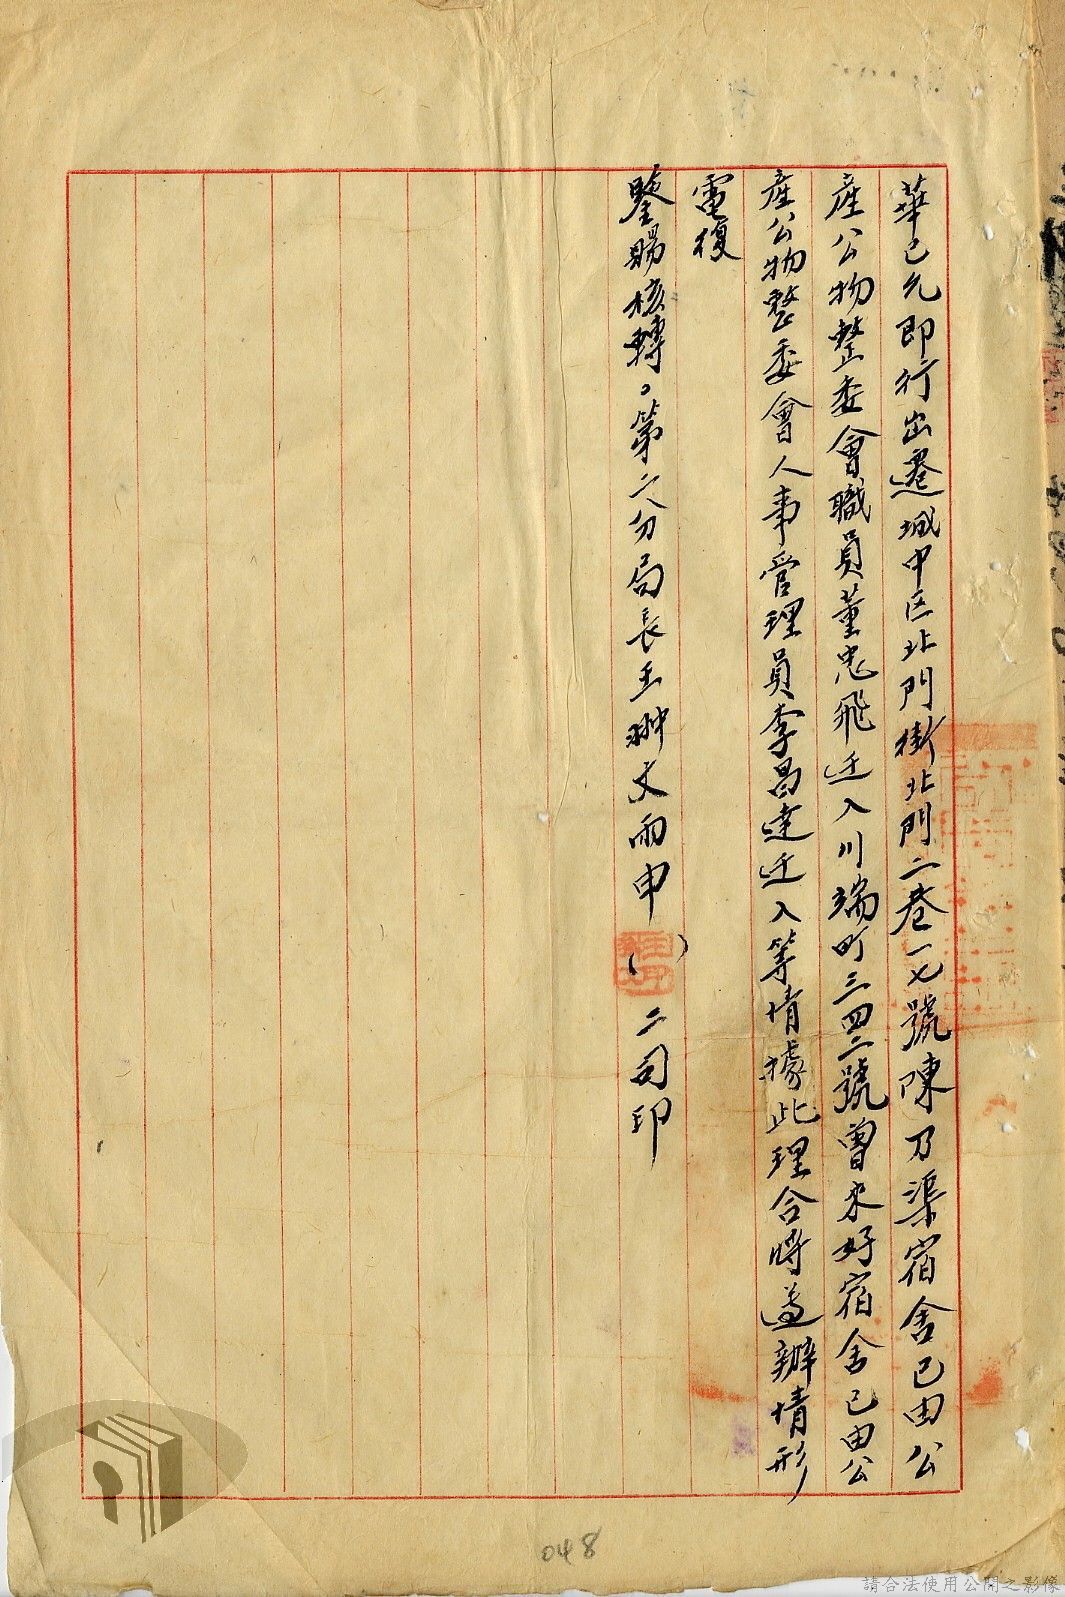 華已允即行出遷城中区北門街北門二巷一七號陳乃渠宿舍已由公
產公物整委會職員董忠飛迁入川端町三四二號曾来好宿舍已由公
產公物整委會人事管理員李昌達迁入等情據此理合將遵辦情形
電復
鑒賜核轉。第六分局長王翀文雨申（）二司印
048
請合法使用公開之影像